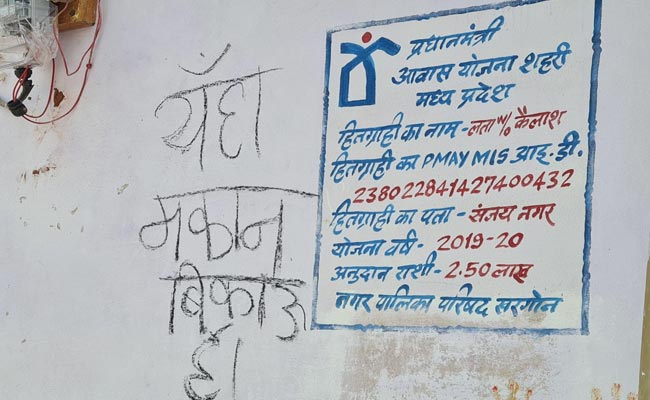 यँहा
मकान
बिकाऊ
है।
प्रधानमंत्री
आवास योजना शहरी
मध्य प्रदेश
हितग्राही का नाम - लता w/o कैलाश
हितग्राही का PMAY MIS आइ. डी.
238022841427400432
हितग्राही का पता - संजय नगर
योजना वर्ष - 2019-20
अनुदान राशी - 2.50 लाख
नगर पालिका परिषद खरगोन